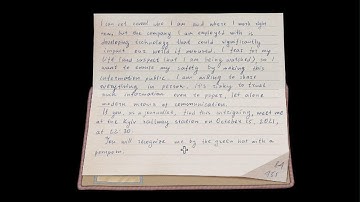 I can not reveal who I am and where I work right
now, but the company I am employed with is
developing technology that could significantly
impact our world if misused. I fear for my
life (and suspect that I am being watched), so I
want to ensure my safety by making this
information public. I am willing to share
everything in person. It's risky to trust
such information even to paper, let alone
modern means of communication.
If you, as a journalist, find this intriguing, meet me
at the Kyiv railway station on October 15, 2021,
at 22:30
You will recognize me by the green hat with a
pompom.